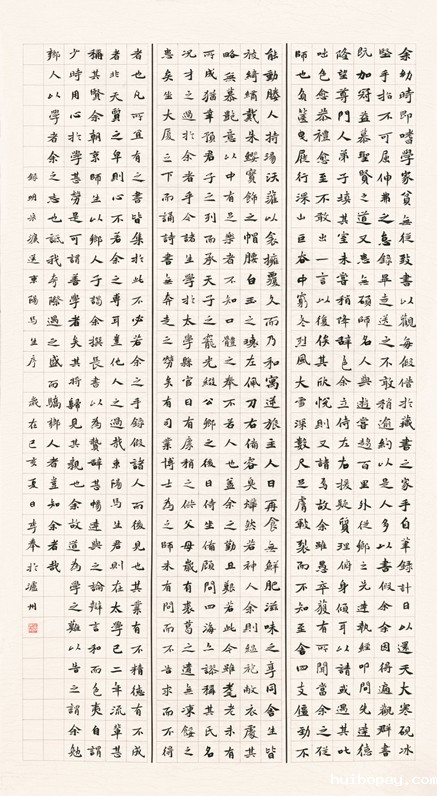 余幼時即嗜學家貧無從致書以觀每假借於藏書之家手自筆錄計日以還天大寒硯冰
堅手指不可屈伸弗之怠錄畢走送之不敢稍逾約以是人多以書假余余因得遍觀群書
既加冠益慕聖賢之道又患無碩師名人與遊嘗趨百里外從鄉之先達執經叩問先達德
隆望尊門人弟子填其室未嘗稍降辭色余立侍左右援疑質理俯身傾耳以請或遇其叱
咄色愈恭禮愈至不敢出一言以復俟其欣悅則又請焉故余雖愚卒獲有所聞當余之從
師也負篋曳屣行深山巨谷中窮冬烈風大雪深數尺足膚皸裂而不知至舍四支僵勁不
能動媵人持湯沃灌以衾擁覆久而乃和寓逆旅主人日再食無鮮肥滋味之享同舍生皆
被綺繡戴朱纓寶飾之帽腰白玉之環左佩刀右備容臭燁然若神人余則縕袍敝衣處其
略無慕艷意以中有足樂者不知口體之奉不若人也蓋余之勤且艱若此今雖耄老未有
所成猶幸預君子之列而承天子之寵光綴公卿之後日侍坐備顧問四海亦謬稱其氏名
況才之過於余者乎今諸生學於太學縣官日有廩稍之供父母歲有裘葛之遺無凍餒之
患矣坐大廈之下而誦詩書無奔走之勞矣有司業博士為之師未有問而不告求而不得
者也凡所宜有之書皆集於此不必若余之手錄假諸人而後見也其業有不精德有不成
者非天質之卑則心不若余之專耳豈他人之過哉東陽馬生君則在太學已二年流輩甚
稱其賢余朝京師生以鄉人子謁余撰長書以為贄辭甚暢達與之論辯言和而色夷自謂
少時用心於學甚勞是可謂善學者矣其將歸見其親也余故道為學之難以告之謂余勉
鄉人以學者余之志也詆我夸際遇之盛而驕鄉人者豈知余者哉
錄明宋濂送東陽馬生序 歲在己亥夏日李奉於瀘州
huibopay.com